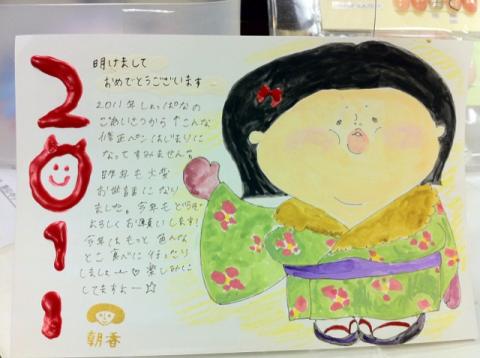 2011
明けまして
おめでとうございます
2011年しょっぱなの
ごあいさつから↑こんな
修正ペンはじまりに
なってすみません!!
昨年も大変
お世話になり
ました。今年もどうぞ
よろしくお願いします!
今年はもっと色んな
とこ食べに行ったり
しましょー♡楽しみに
してますよー☆
朝香